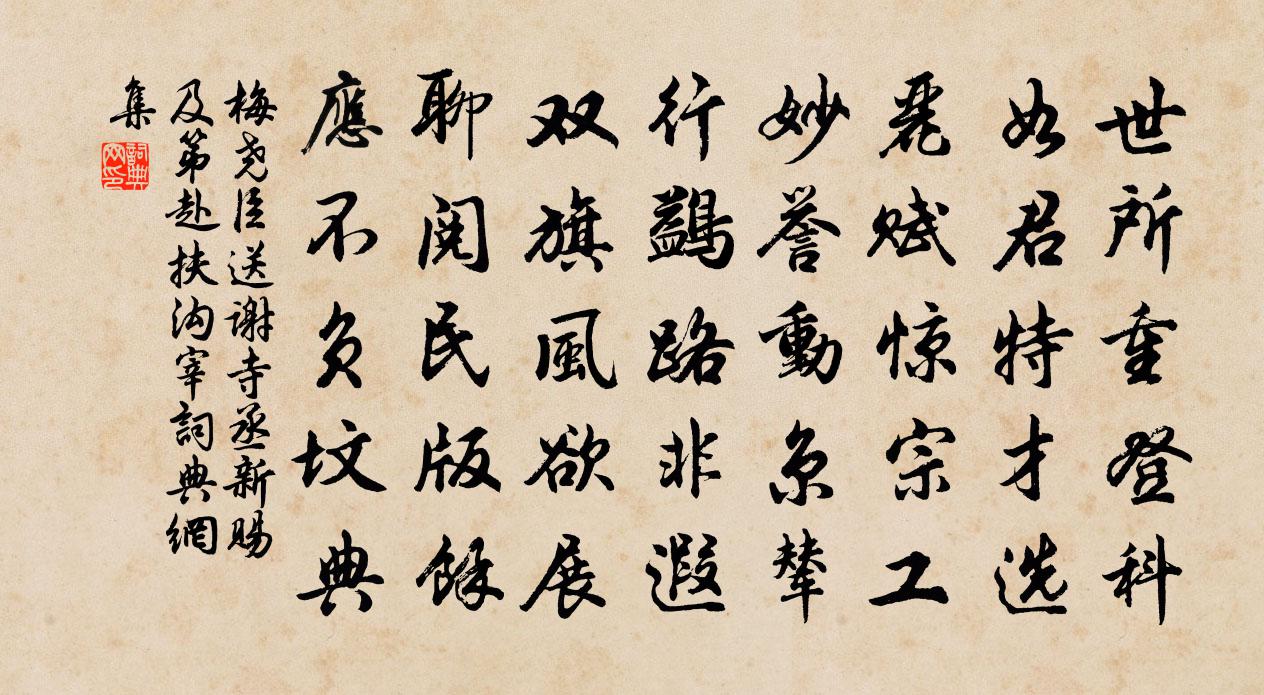 世所重登科
如君特才选
丽赋惊宗工
妙誉動京辇
行鷁路非遐
双旗風欲展
聊阅民版餘
應不負坟典
梅尧臣送谢寺丞新赐
及第赴扶沟宰詞典網
集
詞典網印